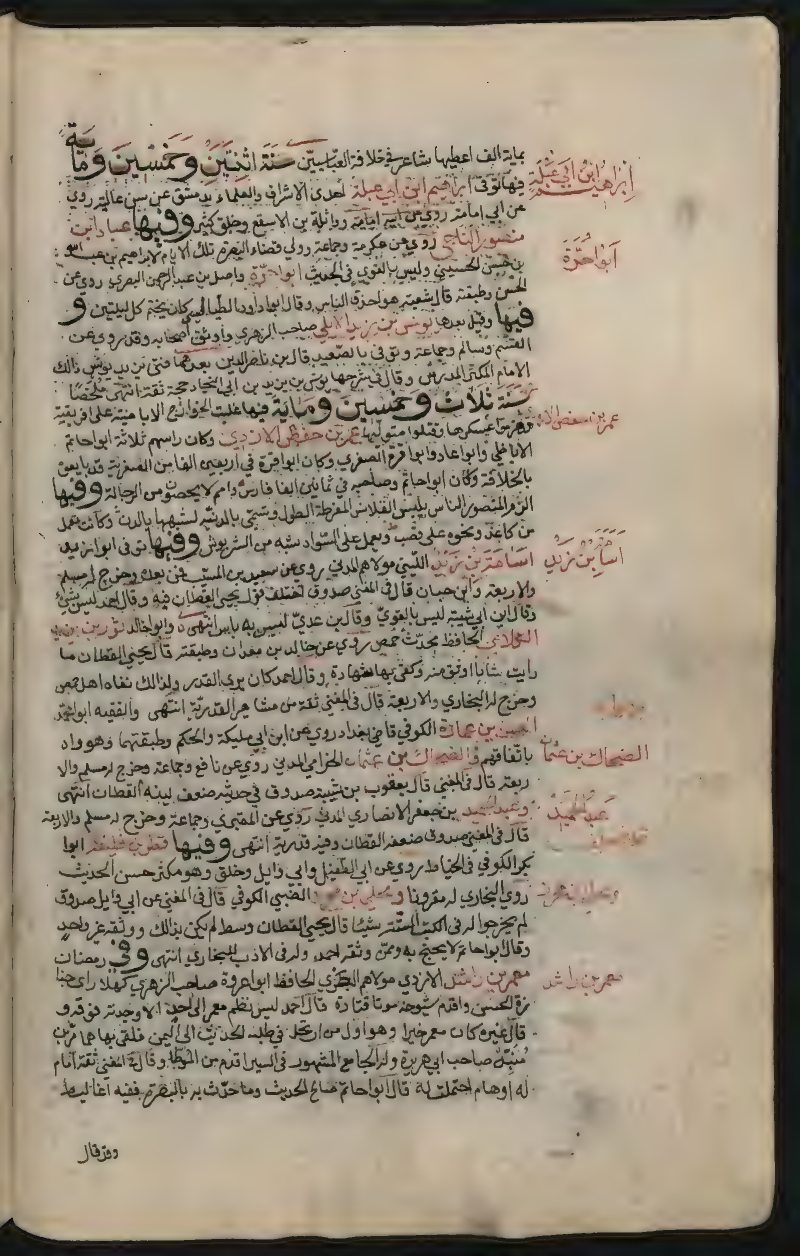 بماية الف اعطيها شاعر في خلافة العباسيين سنة اثنتين وخمسين وماية
ابراهيم ابن ابي عبلة
فيها توفى ابراهيم ابن ابي عبلة احدى الاشراف والعلماء بدمشق عن سن عالية روي
عن ابي امامة وواثلة بن الاسقع وخلق كثير وفيها عباد ابن
منصور الناجي روي عن عكرمة وجماعة وولي قضاء البصرة تلك الايام لابراهيم بن عبد الله
ابوا حرّة
بن حسن الحسيني وليس بالقوي في الحديث ابوا حرّة واصل بن عبد الرحمن البصري روي عن
الحسن وطبقته قال شعبة هو اصدق الناس وقال ابوا داود الطيالسي كان يختم كل ليلتين و
فيها وقيل بعدها يونس بن يزيد الايلي صاحب الزهري واوثق اصحابه وقد روي عن
القاسم وسالم وجماعة وتوفى بالصعيد قال بن ناصر الدين بعدهما فتى يزيد يونس ذالك
الامام المكثر المدرس وقال في شرحها يونس بن يزيد بن ابي النجاد حجة ثقة انتهى ملخصا
سنة ثلاث وخمسين وماية فيها غلبت الخوارج الاباضية على افريقية
عمر بن حفص الازدي
وهزموا عسكرها وقتلوا متوليها عمر بن حفص الازدي وكان راسهم ثلاثة ابوا حاتم
الاباضي وابوا عاد وابوا قرة الصفري وكان ابوا قرة في اربعين الفا من الصفرية قد بايعوه
بالخلافة وكان ابوا حاتم وصاحبه في ثمانين الفا فارس وامم لا يحصون من الرجالة وفيها
الزم المنصور الناس بلبس القلانس المفرطة الطول وتسمى بالدنية لشبهها بالدن وكانت تعمل
من كاغد ونحوه على قصب ويعمل على السواد شبه من الشربوش وفيها توفى ابوا زيد
اسامة بن زيد
اسامة بن زيد الليثي مولاهم المدني روي عن سعيد بن المسيب فمن بعده وخرج له مسلم
والاربعة وابن حبان قال في المغني صدوق اختلف قول يحيى القطان فيه وقال احمد ليس بشئ
وقال ابن ابي شيبة ليس بالقوي وقال بن عدي ليس به باس انتهى وابوا خالد ثور بن يزيد
الكلاعي الحافظ محدث حمص روي عن خالد بن معدان وطبقته قال يحيى القطان ما
رايت شاميا اوثق منه وكفى بها شهادة وقال احمد كان يرى القدر ولذالك نفاه اهل حمص
وخرج له البخاري والاربعة قال في المغني ثقة من مشاهير القدرية انتهى والفقيه ابوا محمد
الحسن بن عمارة الكوفي قاضي بغداد روي عن ابن ابي مليكة والحكم وطبقتهما وهو واه
الضحاك بن عثمان
باتفاقهم والضحاك بن عثمان الحزامي المدني روي عن نافع وجماعة وخرج له مسلم والا
ربعة قال في المغني قال يعقوب بن شيبة صدوق في حديثه ضعف لينه القطان انتهى
عبد الحميد
وعبد الحميد بن جعفر الانصاري المدني روي عن المقبري وجماعة وخرج له مسلم والاربعة
قال في المغني صدوق ضعفه القطان وفيه قدرية انتهى وفيها فطر بن خليفة ابوا
بكر الكوفي الحناط روي عن ابي الطفيل وابي وايل وخلق وهو مكثر حسن الحديث
روي البخاري له مقرونا ومحل بن محرز الضبي الكوفي قال في المغني عن ابي وايل صدوق
لم يخرجوا له في الكتب الستة شيئا قال يحيى القطان وسط لم يكن بذالك ووثقه غير واحد
وقال ابوا حاتم لا يحتج به وممن وثقه احمد وله في الادب للبخاري انتهى وفي رمضان
معمر بن راشد
معمر بن راشد الازدي مولاهم البصري الحافظ ابوا عروة صاحب الزهري كهلا راى جنا
زة الحسن واقدم شيوخه موتا قتادة قال احمد ليس نظم معمر الى احد الا وجدته فوقه و
قال غيره كان معمر خيرا وهو اول من ارتحل في طلب الحديث الى اليمن فلقى بها همام بن
منبه صاحب ابي هريرة وله الجامع المشهور في السير اقدم من الموطا وقال في المغني ثقة امام
له اوهام احتملت له قال ابوا حاتم صالح الحديث وما حدّث به بالبصرة ففيه اغاليط
وقد قال